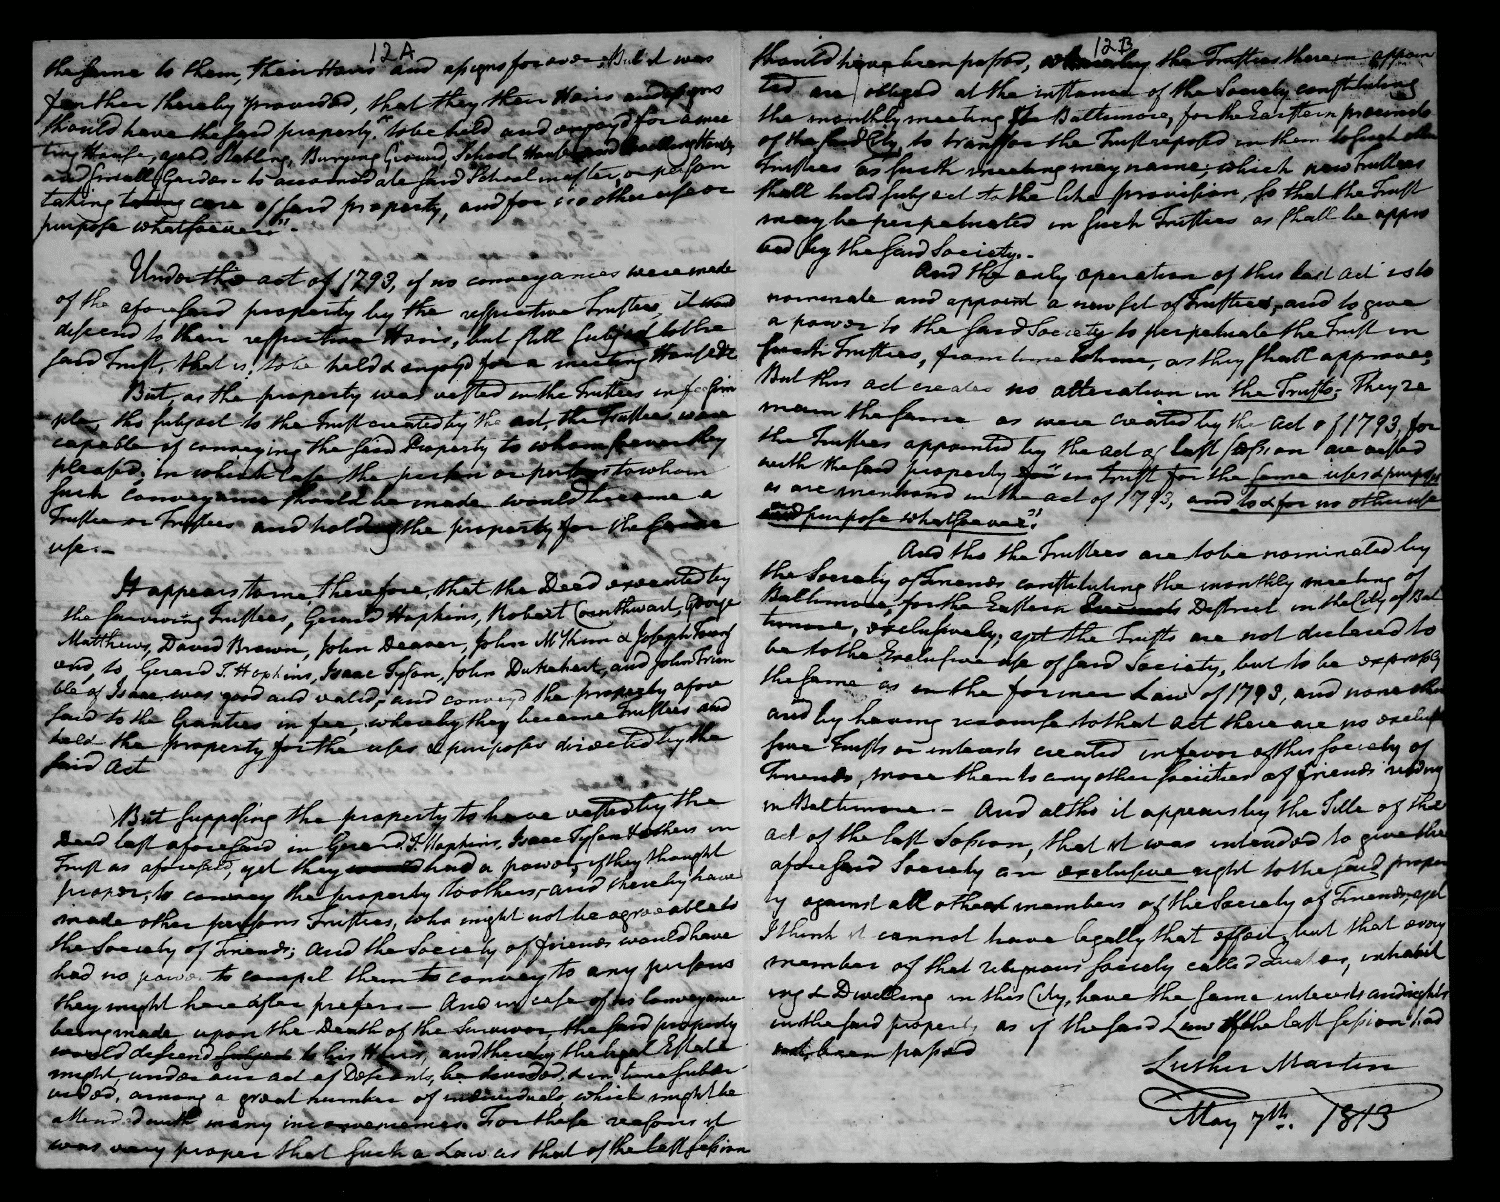 12A
the same to them, their Heirs and assigns forever; But it was
further thereby provided, that they their Heirs and assigns
should have the said property, "to be held and enjoyed for a mee
ting House, yard, Stabling, Burying Ground, School House and dwelling House,
and small Garden to accomodate said School master, or person
taking care of said property, and for no other use or
purpose whatsoever".
Under the act of 1793, if no conveyances were made
of the aforesaid property by the respective Trustees, it would
descend to their respective Heirs, but still Subject to the
said Trust, that is, to be held & enjoyed for a meeting House &c
But, as the property was vested in the Trustees in fee sim
ple, tho subject to the Trust created by the act, the Trustees were
capable of conveying the said Property to whomsoever they
pleased; in which case the person or persons to whom
such conveyance should be made would become a
Trustee or Trustees and holding the property for the same
use.—
It appears to me, therefore, that the Deed executed by
the surviving Trustees, Gerard Hopkins, Robert Cornthwait, George
Matthews, David Brown, John Deaver, John McKim & Joseph Towns
end, to, Gerard T. Hopkins, Isaac Tyson, John Dukehart, and John Trim
ble of Isaac was good and valid, and conveyed the property afore
said to the Grantees in fee, whereby they became Trustees and
held the property for the uses & purposes directed by the
said Act
But supposing the property to have vested by the
Deed last aforesaid in Gerard T. Hopkins, Isaac Tyson & others in
Trust as aforesaid, yet they would had a power, if they thought
proper, to convey the property to others, and thereby have
made other persons Trustees, who might not be agreeable to
the Society of Friends; And the Society of friends would have
had no power to compel them to convey to any persons
they might hereafter prefer.— And in case of no Conveyance
being made upon the Death of the Survivor, the said property
would descend subject to his Heirs, and thereby the legal Estate
might, under our act of Descents, be divided, & in time subdi
vided, among a great number of individuals, which might be
attended with many inconveniences. For these reasons it
was very proper that such a Law as that of the last Session
12B
should have been passed, whereby the Trustees therein appoin
ted are obliged at the instance of the Society constituting
the monthly meeting of Baltimore, for the Eastern precincts
of the said City, to transfer the Trust reposed in them to such other
Trustees as such meeting may name; which new Trustees
shall hold subject to the like provision, so that the Trust
may be perpetuated in such Trustees as shall be appro
ved by the said Society.—
And the only operation of this last act is to
nominate and appoint a new set of Trustees, and to give
a power to the said Society to perpetuate the Trust in
such Trustees, from time to time, as they shall approve;
But this act creates no alteration in the Trusts; They re
main the same as were created by the act of 1793, for
the Trustees appointed by the act of last Session are vested
with the said property "in trust for the same uses & purposes
as are mentioned in the act of 1793, and to & for no other use
and purpose whatsoever".
And tho the Trustees are to be nominated by
the Society of Friends constituting the monthly meeting of
Baltimore, for the Eastern District in the City of Bal
timore, exclusively; yet the Trusts are not declared to
be to the exclusive use of said Society, but to be expressly
the same as in the former Law of 1793, and none other
and by having recourse to that act there are no exclu
sive Trusts or interests created in favor of this Society of
Friends, more than to any other societies of friends residing
in Baltimore.— And altho it appears by the Title of the
act of the last Session, that it was intended to give the
aforesaid Society an exclusive right to the said proper
ty against all other members of the Society of Friends, yet
I think it cannot have legally that effect, but that every
member of that religious Society called Quakers, inhabit
ing & Dwelling in this City, have the same interests and rights
in the said property as if the said Law of the last session had
not been passed
Luther Martin
May 7th. 1813